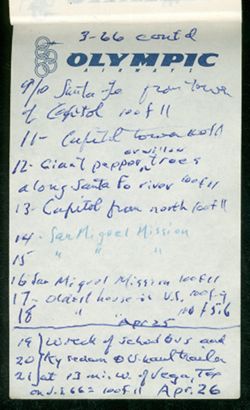 3-66 contd
OLYMPIC
AIRWAYS
9/10 Santa Fe from tower
of Capitol 100f11
11- Capitol tower 100f11
or willow
12- Giant pepper trees
along Santa Fe river 100f11
13- Capitol from north 100f11
14- San Miguel Mission
15 " " "
16 San Miguel Mission 100f11
17- oldest house in U.S. 100f.9
18 " " 100f5.6
Apr 25
19) Wreck of school bus and
20) Ky sedan & U-haul trailer
21) at 13 mi W. of Vega, Tex
on U.S. 66= 100f11 Apr. 26